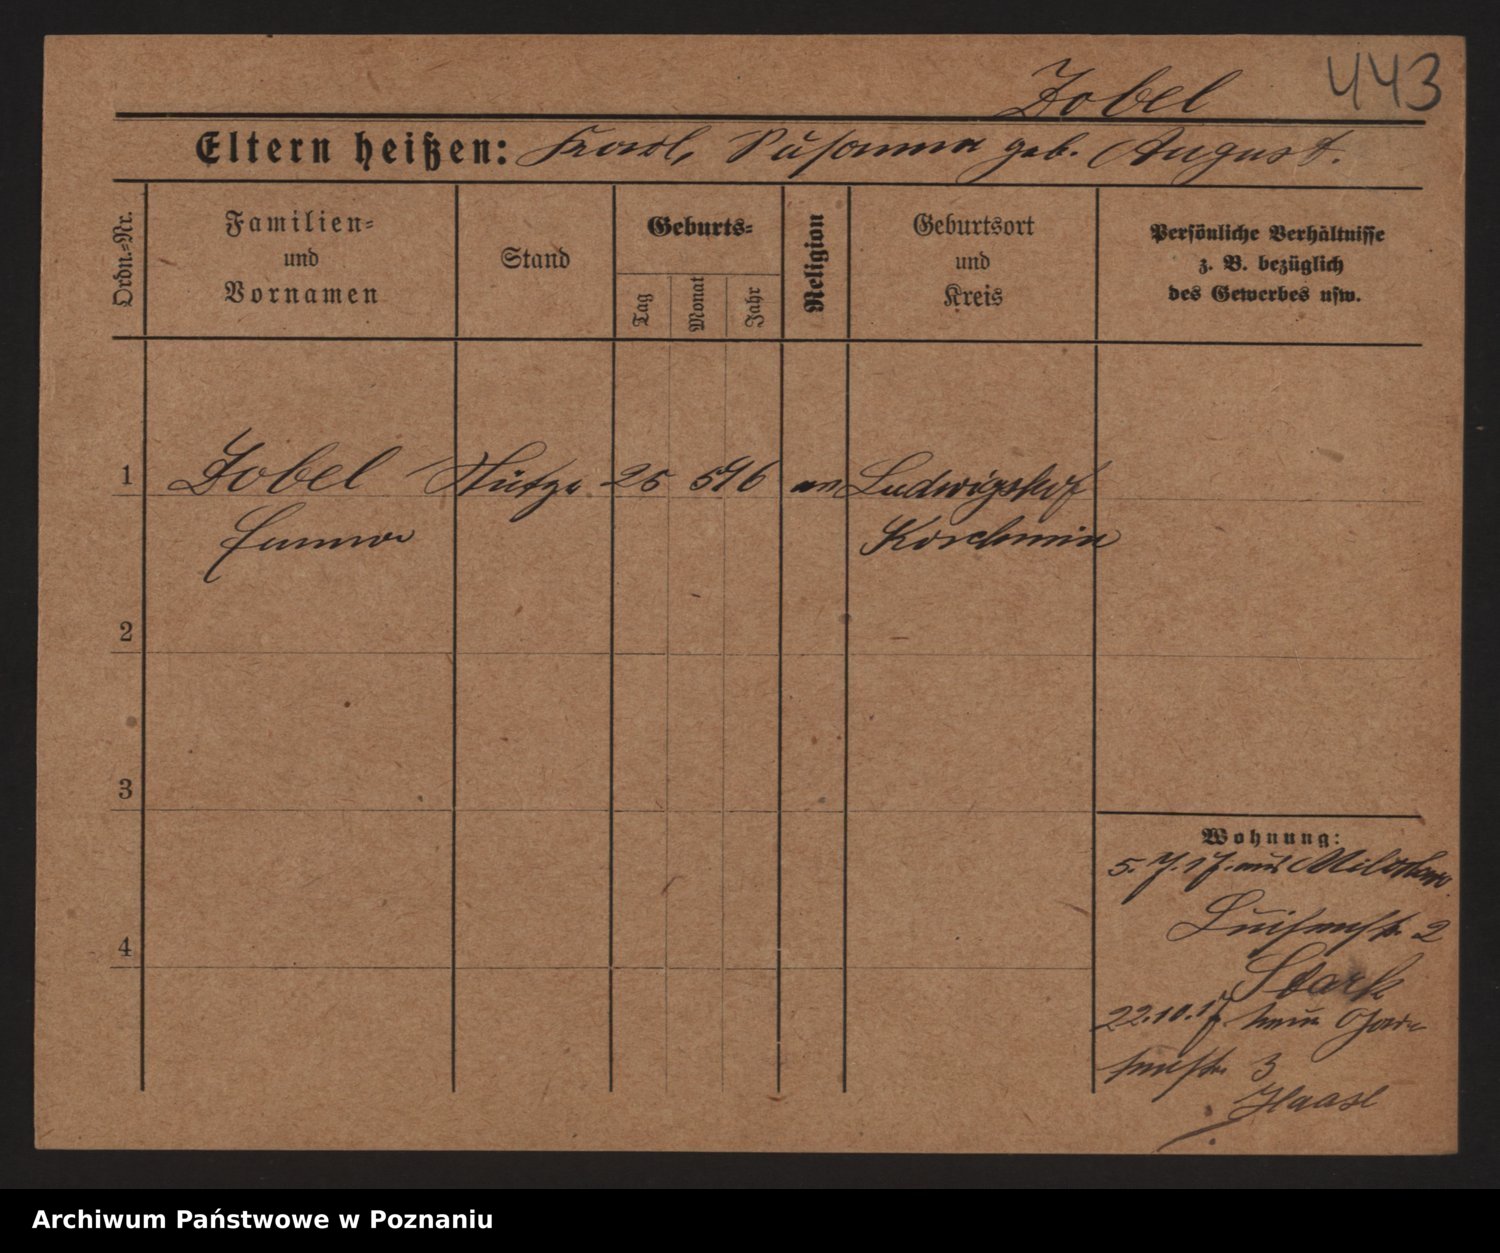 443
Zobel
Eltern heißen: Karl, Susanna geb. August.
Ordn.-Nr.
Familien-
und
Vornamen
Stand
Geburts-
Tag
Monat
Jahr
Religion
Geburtsort
und
Kreis
Persönliche Verhältnisse
z. B. bezüglich
des Gewerbes usw.
1
Zobel Stütze 25 5 96 Ludwigshof
Emma Koschmin
2
3
Wohnung:
5.7.17. aus
Luisenstr. 2
4
Stark
22.10.17
3
Haase
Archiwum Państwowe w Poznaniu